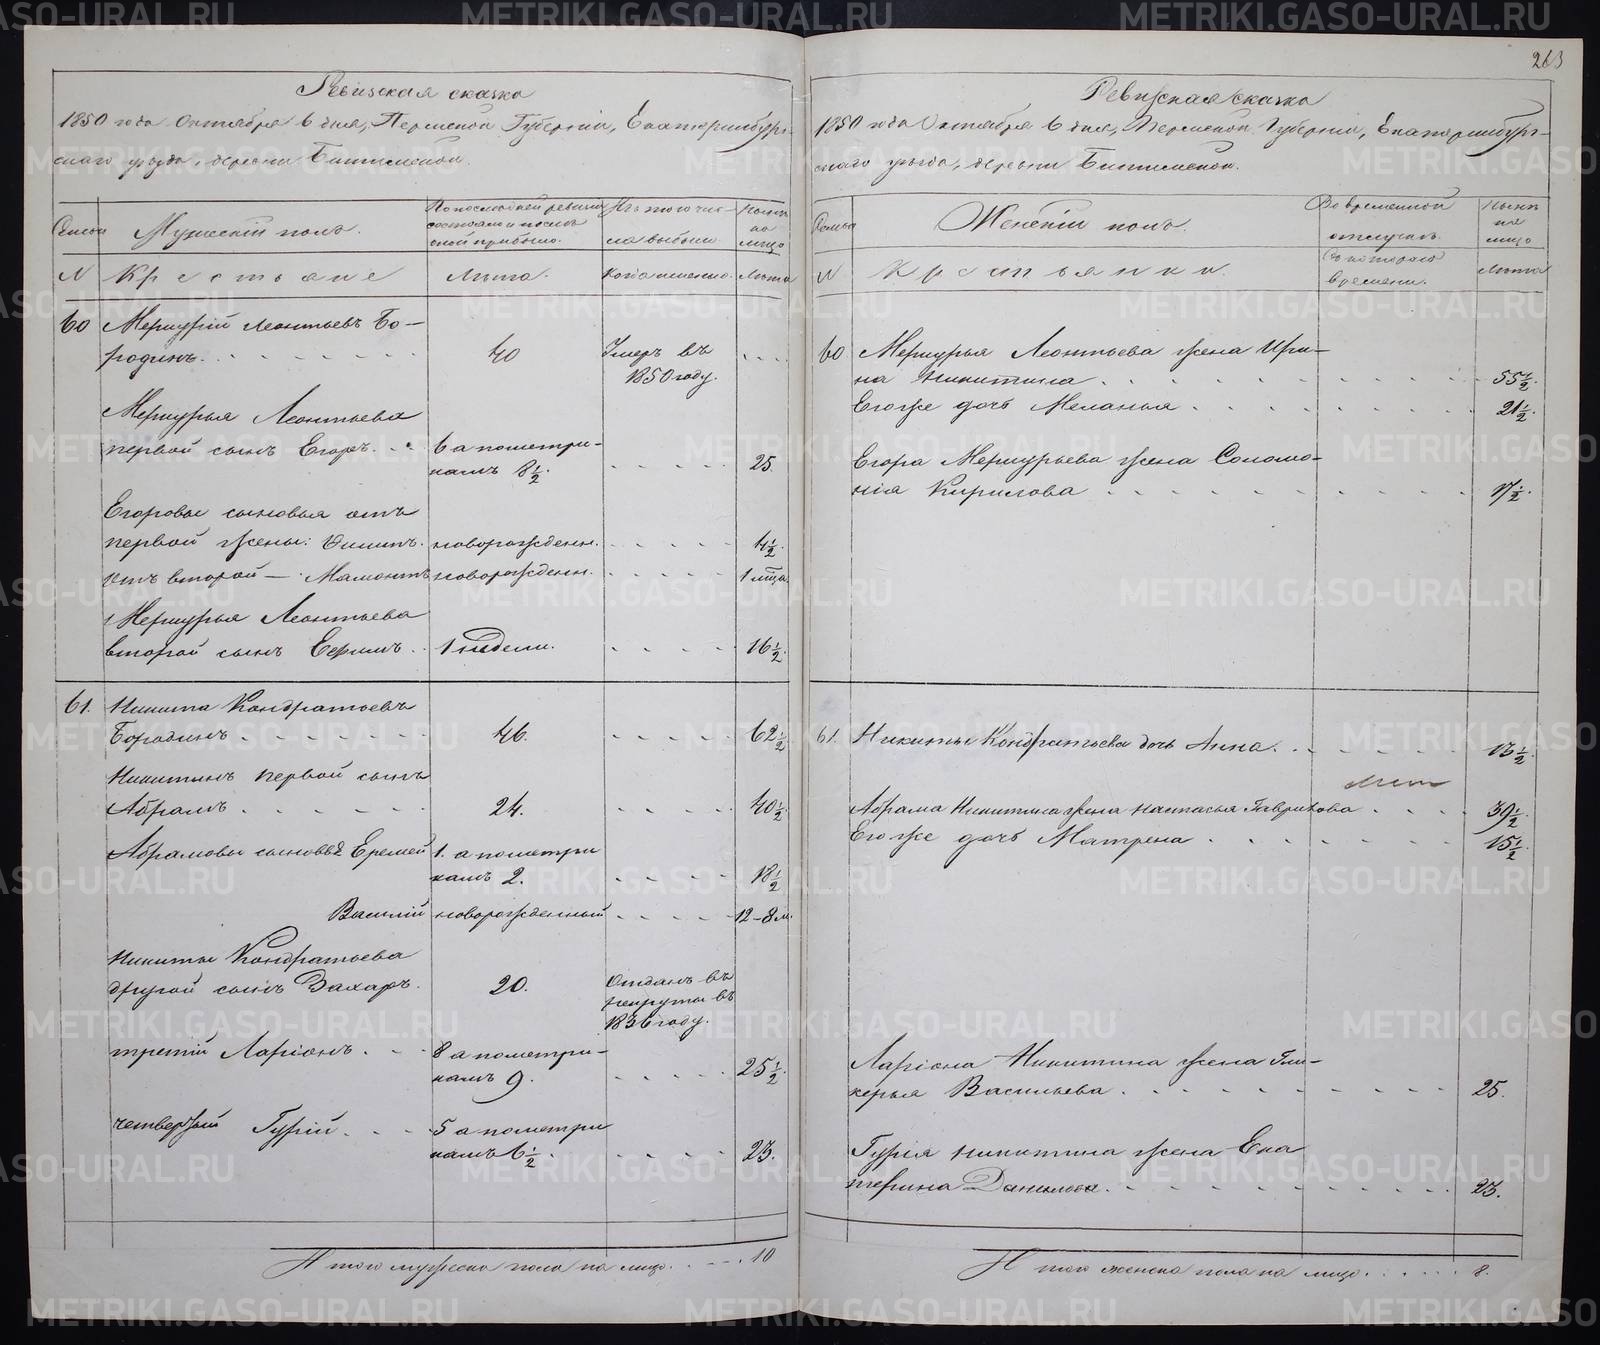 263
Ревизская сказка
1850 года Октября 6 дня, Пермской Губернiи, Екатеринбург-
скаго уезда, деревни Битимской.
Семьи
Мужескiй полъ.
По последней ревизiи
состояло и после
оной прибыло.
Изъ того чис-
ла выбыло
Ныне
на
лицо
N
Крестьяне
Лета.
Когда именно.
Лета
60
Меркурiй Леонтьевъ Бо-
родинъ.
40
Умеръ въ
1850 году.
Меркурья Леонтьева
первой сынъ Егоръ.
6 а по метри-
камъ 8½.
25.
Егоровы сыновья отъ
первой жены:
новорожденн.
4½.
отъ второй — Мамонтъ
новорожденн.
1 м-ца.
Меркурья Леонтьева
второй сынъ Ефимъ.
1 недели.
16½.
61.
Никита Кондратьевъ
Бородинъ
46.
62½
Никитинъ первой сынъ
Абрамъ
24.
40½
Абрамовы сыновья Еремей
1. а по метри
камъ 2.
18½
Василiй
новорожденный
12-8 м.
Никиты Кондратьева
другой сынъ Захаръ.
20.
Отданъ въ
рекруты въ
1836 году.
третiй Ларiонъ.
8 а по метри-
камъ 9.
25½.
четвертый Гурiй.
5 а по метри
камъ 6½.
23.
Итого мужеска пола на лицо 10
Ревизская сказка
1850 года Октября 6 дня, Пермской Губернiи, Екатеринбург-
скаго уезда, деревни Битимской.
Семьи
Женскiй полъ.
Во временной
отлучке
Ныне
на
лицо
N
Крестьянки.
Съ котораго
времени.
Лета
60
Меркурья Леонтьева жена Ири-
на Никитина
55½.
Егоже дочь Меланья
21½.
Егора Меркурьева жена Соломо-
нiя Кирилова
17½.
61.
Никиты Кондратьева дочь Анна.
13½
Абрама Никитина жена Настасья Гаврилова
39½
Егоже дочь Матрена
15½
Ларiона Никитина жена Гли-
керья Васильева
25.
Гурiя Никитина жена Ека
терина Данилова
23.
Итого женска пола на лицо 8.
METRIKI.GASO-URAL.RU